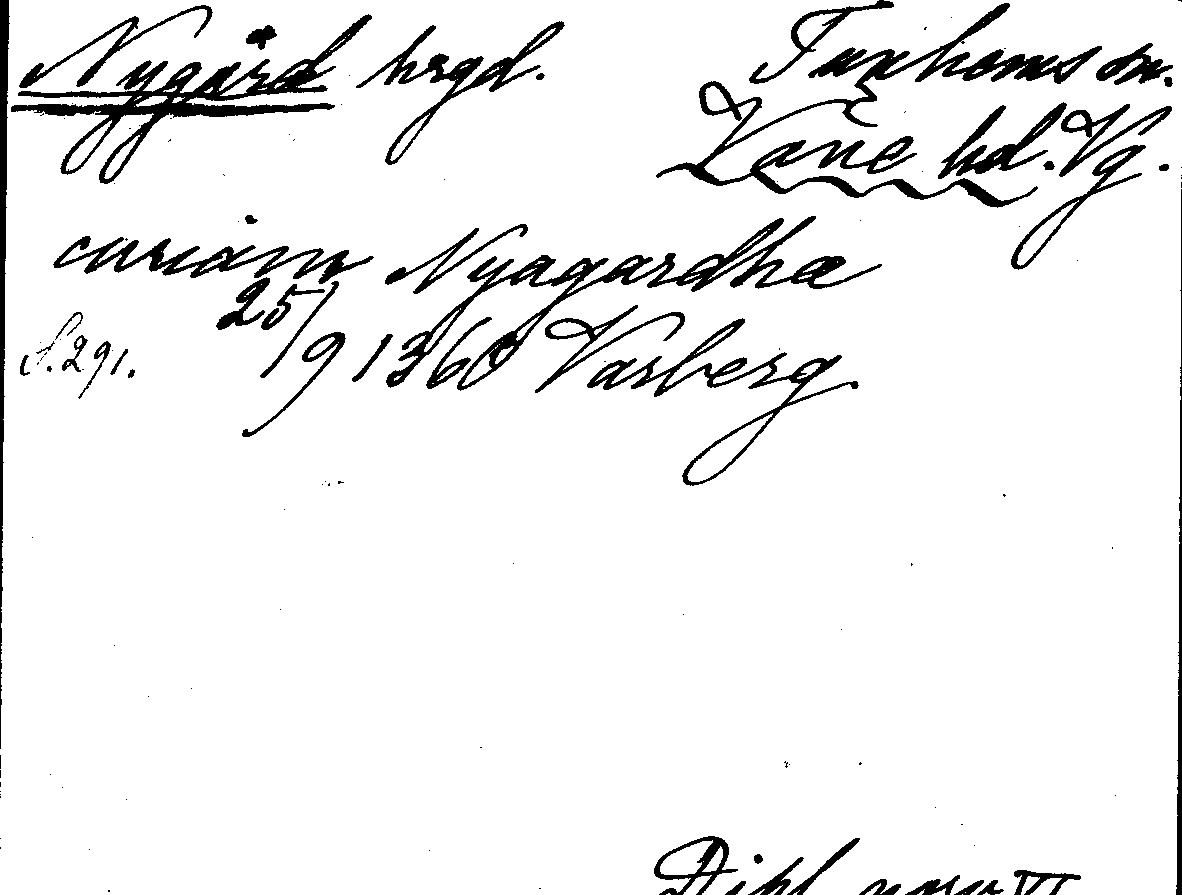 Nygård hrgd. Tunhems sn.
Väne hd. Vg.
curiam Nyagardhæ
S. 291. 25/9 1360 Varberg.
Dipl. norv. VI